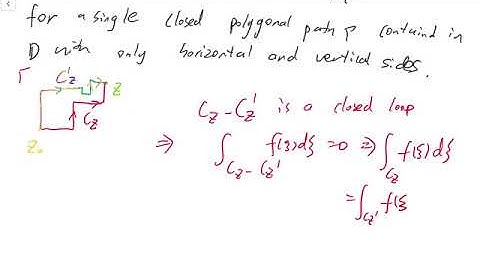 for a single closed polygonal path P containd in
D with only horizontal and vertical sides.
Γ C'z z
Cz
z₀
Cz - Cz' is a closed loop
⇒ ∫_{Cz - Cz'} f(ξ)dξ = 0 ⇒ ∫_{Cz} f(ξ)dξ
= ∫_{Cz'} f(ξ